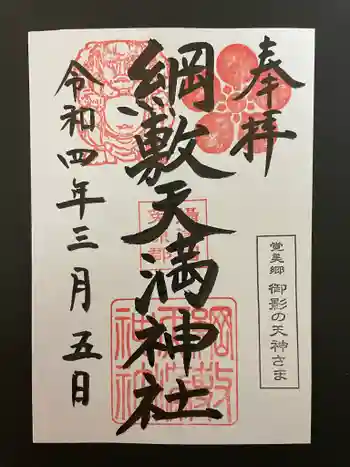 奉拝
綱敷天満神社
令和四年三月五日
覚美郷 御影の天神さま